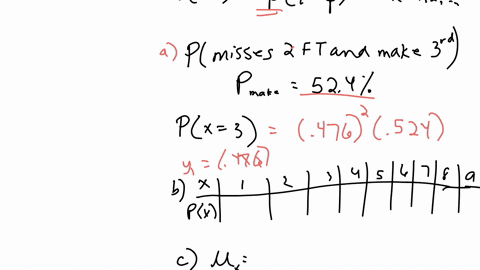 a) P( misses 2 FT and make 3rd)
P make = 52.4%
P(x=3) = (.476)² (.524)
y₁ = (.476)
b) x 1 2 3 4 5 6 7 8 9
P(x)
c) μx =